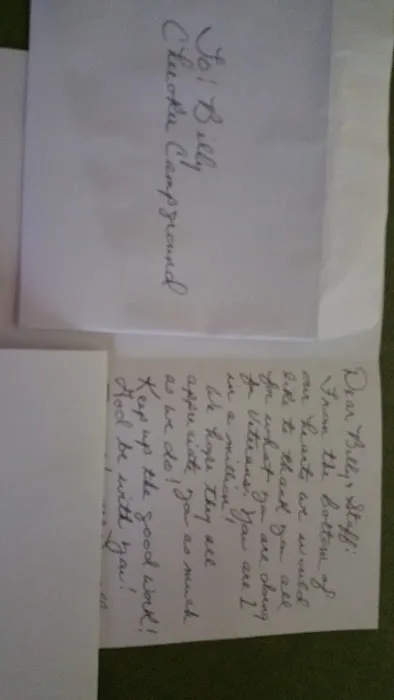 To! Billy
Cherokee Campground
Dear Billy & Staff:
From the bottom of
our hearts we would
like to thank you all
for what you are doing
for Veterans. You are 1
in a million!
We hope they all
appreciate you as much
as we do!
Keep up the good work!
God be with you!